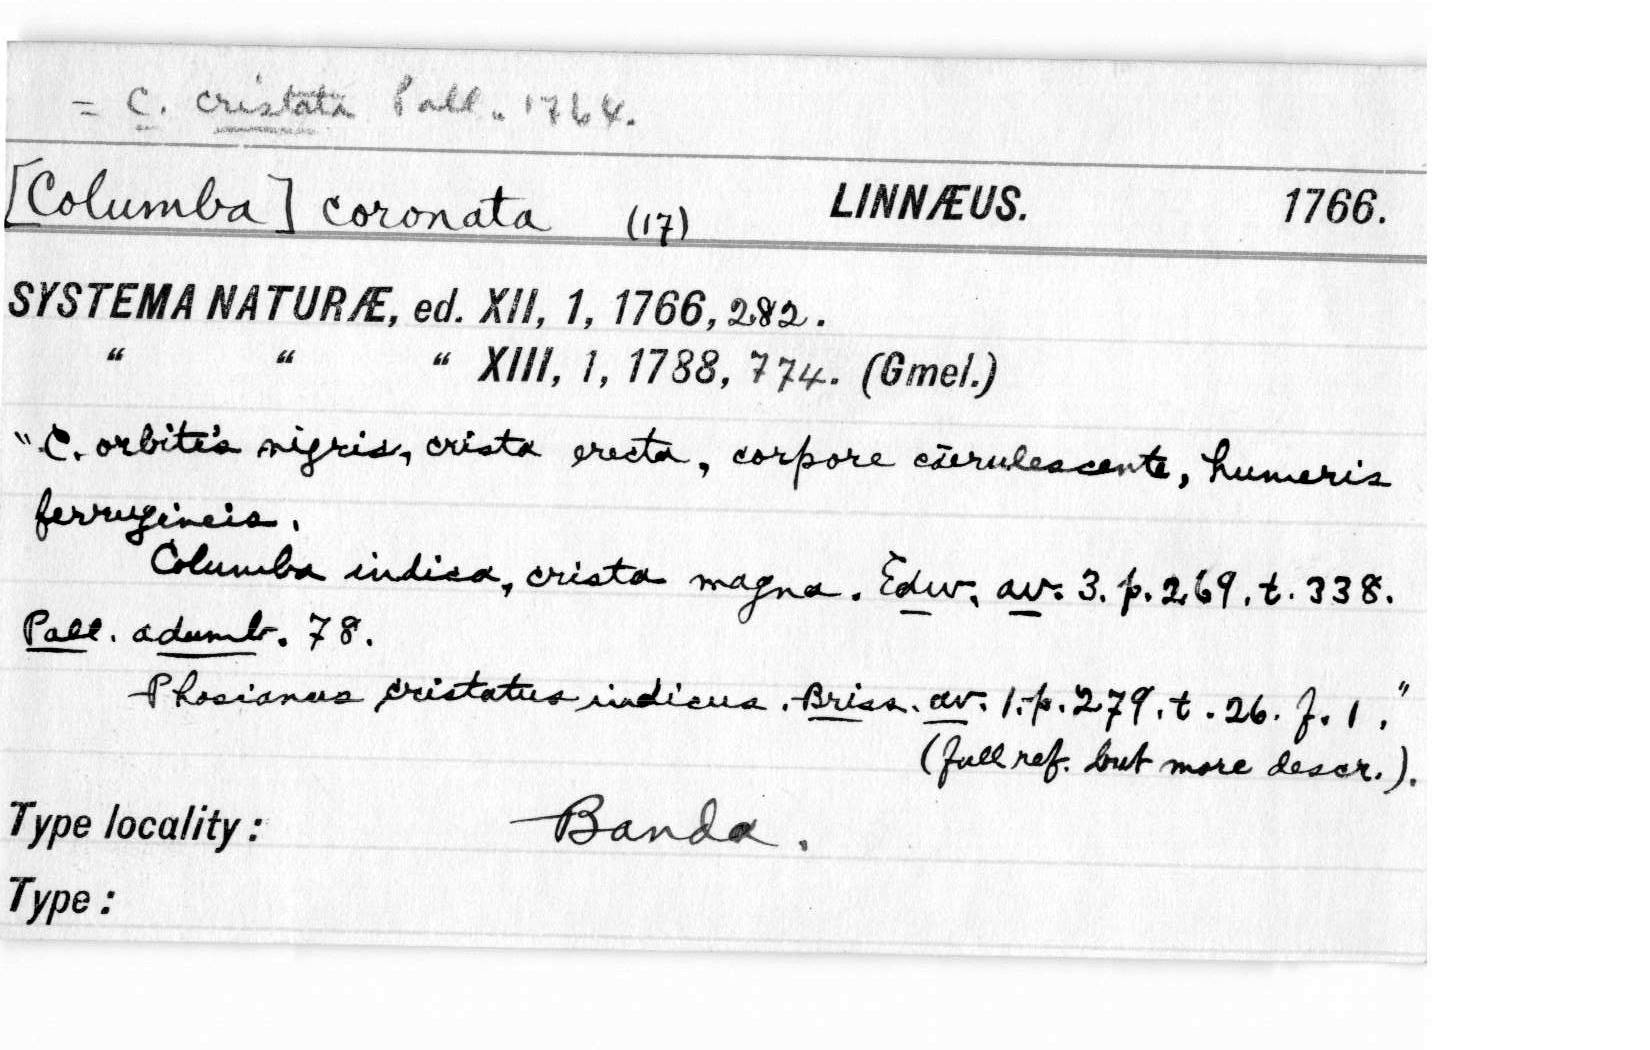 = C. cristata Pall. 1764.
[Columba] coronata (17) LINNÆUS. 1766.
SYSTEMA NATURÆ, ed. XII, 1, 1766, 282.
“ “ “ XIII, 1, 1788, 774. (Gmel.)
"C. orbitis nigris, crista erecta, corpore cærulescente, humeris
ferrugineis.
Columba indica, crista magna. Edw. av. 3. p. 269. t. 338.
Pall. adumb. 78.
Phasianus cristatus indicus. Briss. av. 1. p. 279. t. 26. f. 1."
(full ref. but more descr.).
Type locality: Banda.
Type: